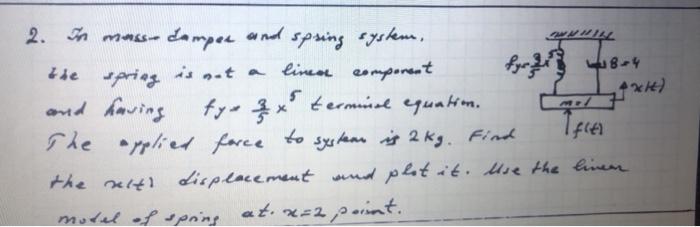 2. In mass-damper and spring system,
the spring is not a linear component
and having fy = 3/5 x^5 terminal equation.
The applied force to system is 2 kg. Find
the x(t) displacement and plot it. Use the linear
model of spring at x=2 point.
fy=3/5 x^5
B=4
x(t)
m=1
f(t)